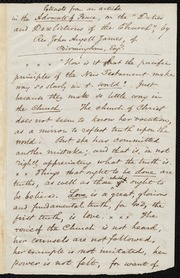 Extracts from an article
in the Advocate of Peace, on the "Duties
and Derelictions of the Church," by
Rev John Angell James, of
Birmingham, Eng.
"How is it that the pacific
principles of the New Testament make
way so slowly in the world? Just
because they make so little way in
the Church. The church of Christ
does not seem to know her vocation,
as a mirror to reflect truth upon the
world. But she has committed
another mistake; and that is, in not
rightly appreciating what the truth is
... Things that ought to be done are
truths, as well as those which ought to
be believed. Love is a great, glorious
and fundamental truth, for God, the
first truth, is love. .... The
voice of the Church is not heard,
her counsels are not followed,
her example is not imitated, her
power is not felt, for want of